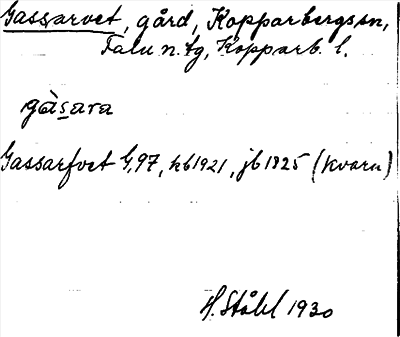 Gassarvet, gård, Kopparbergs sn,
Falu n. tg, Kopparb. l.
gàsara
Gassarfvet G,97, kb1921, jb1825 (kvarn)
H. Ståhl 1930